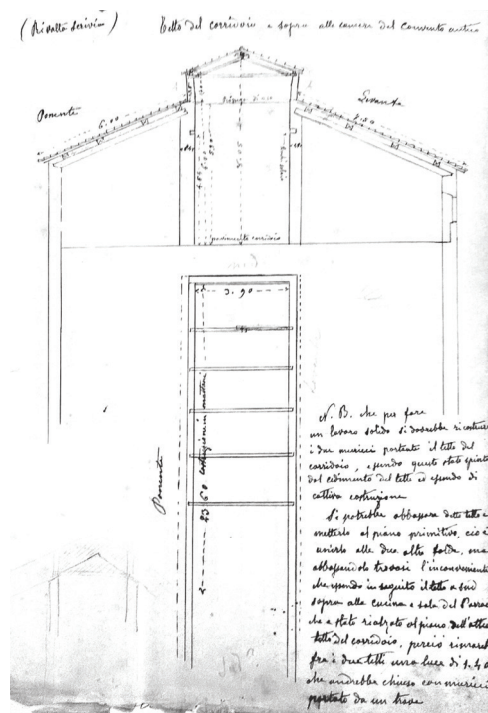 (Rivalta Scrivia)
Tetto del corridoio e sopra alle camere del convento antico
Ponente
Levante
6.00
7.50
pavimento corridoio
3.90
Ponente
23.60 costruzione in mattoni
N. B. che per fare
un lavoro solido si dovrebbe ricostruire
i due muricci portanti il tetto del
corridoio, essendo questo stato spinto
dal cedimento del tetto ed essendo di
cattiva costruzione
Si potrebbe abbassare detto tetto e
metterlo al piano primitivo, cioè
unirlo alle due altre falde, ma
abbassandolo trovasi l'inconveniente
che essendo in seguito il tetto a sud
sopra alla cucina e sala del
che è stato rialzato al piano dell'attuale
tetto del corridoio, perciò
fra i due tetti una luce di 1.40
che andrebbe chiuso con muriccio
portato da un trave